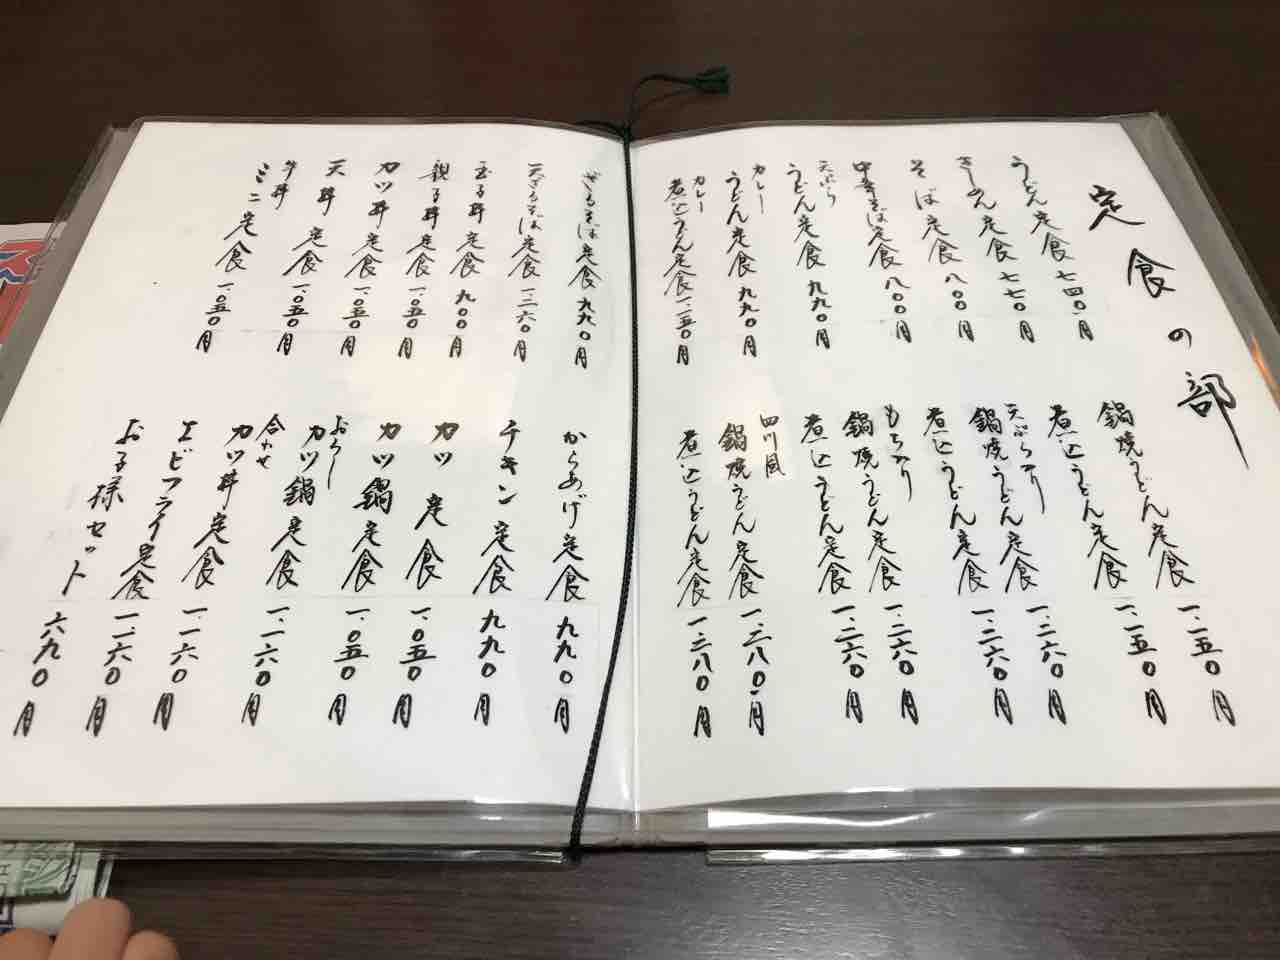 定食の部
うどん定食 七四〇円
きしめん定食 七七〇円
そば定食 八〇〇円
中華そば定食 八〇〇円
天ぷら
うどん定食 九九〇円
カレー
うどん定食 九九〇円
カレー
煮込うどん定食 一、一五〇円
鍋焼うどん定食 一、一五〇円
煮込うどん定食 一、一五〇円
天ぷら入り
鍋焼うどん定食 一、二六〇円
煮込うどん定食 一、二六〇円
もち入り
鍋焼うどん定食 一、二六〇円
煮込うどん定食 一、二六〇円
四川風
鍋焼うどん定食 一、二八〇円
煮込うどん定食 一、二八〇円
ざるそば定食 九九〇円
天ざるそば定食 一、二六〇円
玉子丼定食 九〇〇円
親子丼定食 一、〇五〇円
カツ丼定食 一、〇五〇円
天丼定食 一、〇五〇円
牛丼
ミニ定食 一、〇五〇円
からあげ定食 九九〇円
チキン定食 九九〇円
カツ定食 一、〇五〇円
カツ鍋定食 一、〇五〇円
おろし
カツ鍋定食 一、一六〇円
合わせ
カツ丼定食 一、一六〇円
エビフライ定食 一、一六〇円
お子様セット 六九〇円